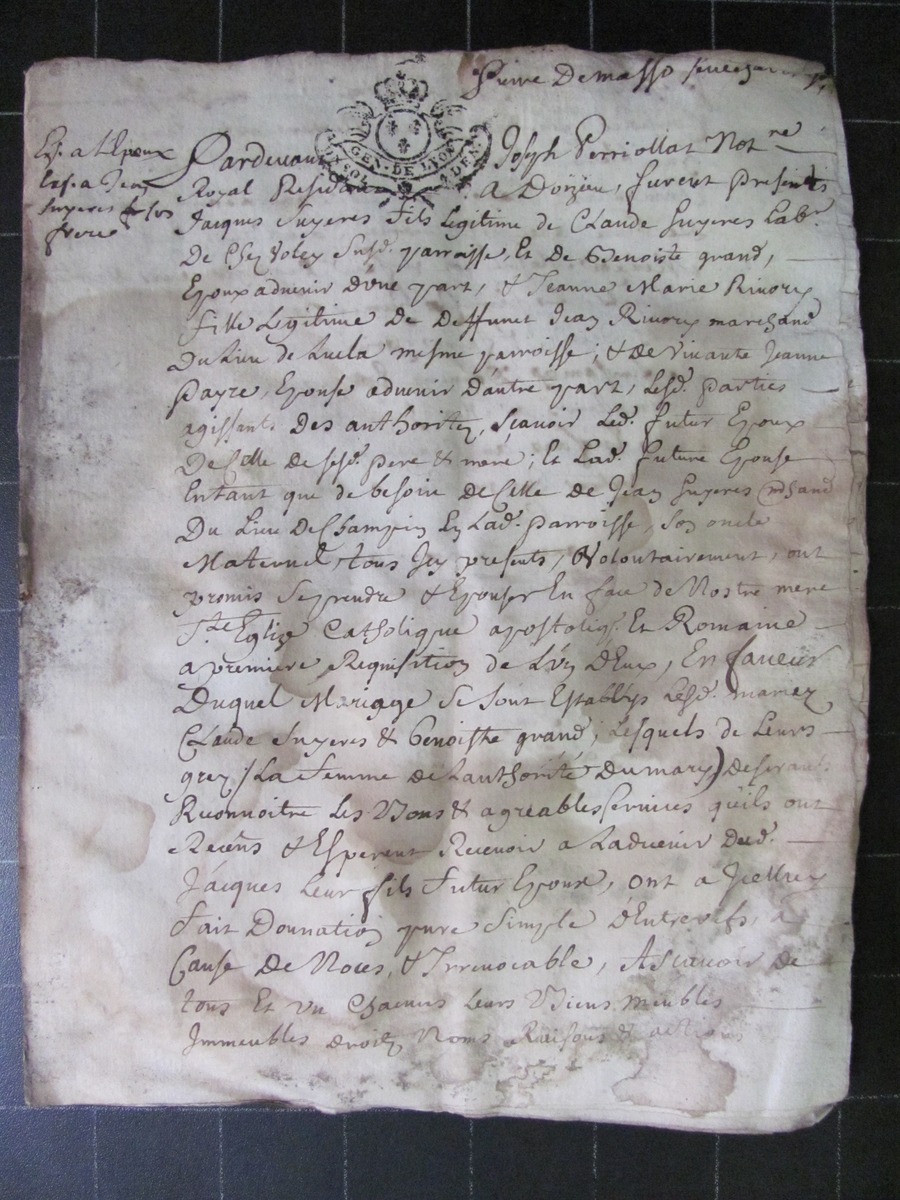 Pierre Demasso
GEN. DE LYON
Exp. a l'Epoux
Exp. a Jean
Suyeres son
frere
Pardevant Joseph Perriollat Notre
Royal Residant a Doizieu, furent presents
Jacques Suyeres fils Legitime de Claude Suyeres Labr
De Chez Voley Susd. parroisse, Et de Benoiste grand,
Epoux advenir d'une part, & Jeanne Marie Rivory
fille Legitime de Deffunct Jean Rivory marchand
Du Lieu de Luela mesme parroisse; & de vivante Jeanne
Payre, Epouse advenir d'autre part, Lesd. parties
agissants Des authoritez, Sçavoir Led. futur Epoux
De Celle de sesd. pere & mere; Et Lad. future Epouse
Entant que de besoin de Celle de Jean Suyeres mchand
Du Lieu De Champin En Lad. parroisse, Son oncle
Maternel, tous Icy presents, Volontairement, ont
promis Se prendre & Epouser En face de Nostre mere
Ste Eglize Catholique apostoliq. Et Romaine
a premiere Requisition de L'un D'Eux, En faveur
Duquel Mariage Se Sont Establys Lesd. mariez
Claude Suyeres & Benoiste grand, Lesquels de Leurs
grez / La Femme de Lauthorité Du mary) desirants
Reconnoitre Les Bons & agreables services qu'ils ont
Receus & Esperent Recevoir a Ladvenir Dud.
Jacques Leur fils Futur Epoux, ont a Icelluy
Fait Donnation pure Simple D'Entrevifs, a
Cause De Noces, & Irrevocable, A Scavoir de
tous Et un Chacuns Leurs Biens meubles
Immeubles droitz Noms Raisons & actions